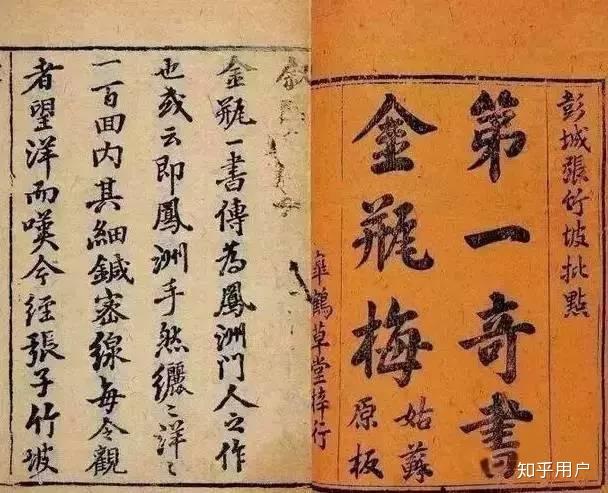 彭城張竹坡批點
第一奇書
金瓶梅
姑蘇
原板
皋鶴草堂梓行
金瓶一書傳為鳳洲門人之作
也或云即鳳洲手然纚〻洋〻
一百回内其細鍼密線每令觀
者望洋而嘆今經張子竹坡
知乎用户